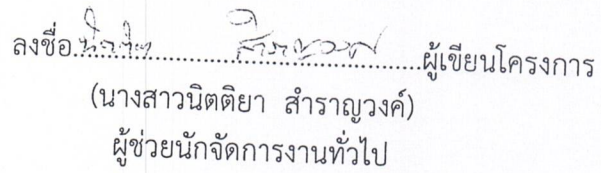 ลงชื่อ........................................ผู้เขียนโครงการ
(นางสาวนิตติยา สำราญวงค์)
ผู้ช่วยนักจัดการงานทั่วไป